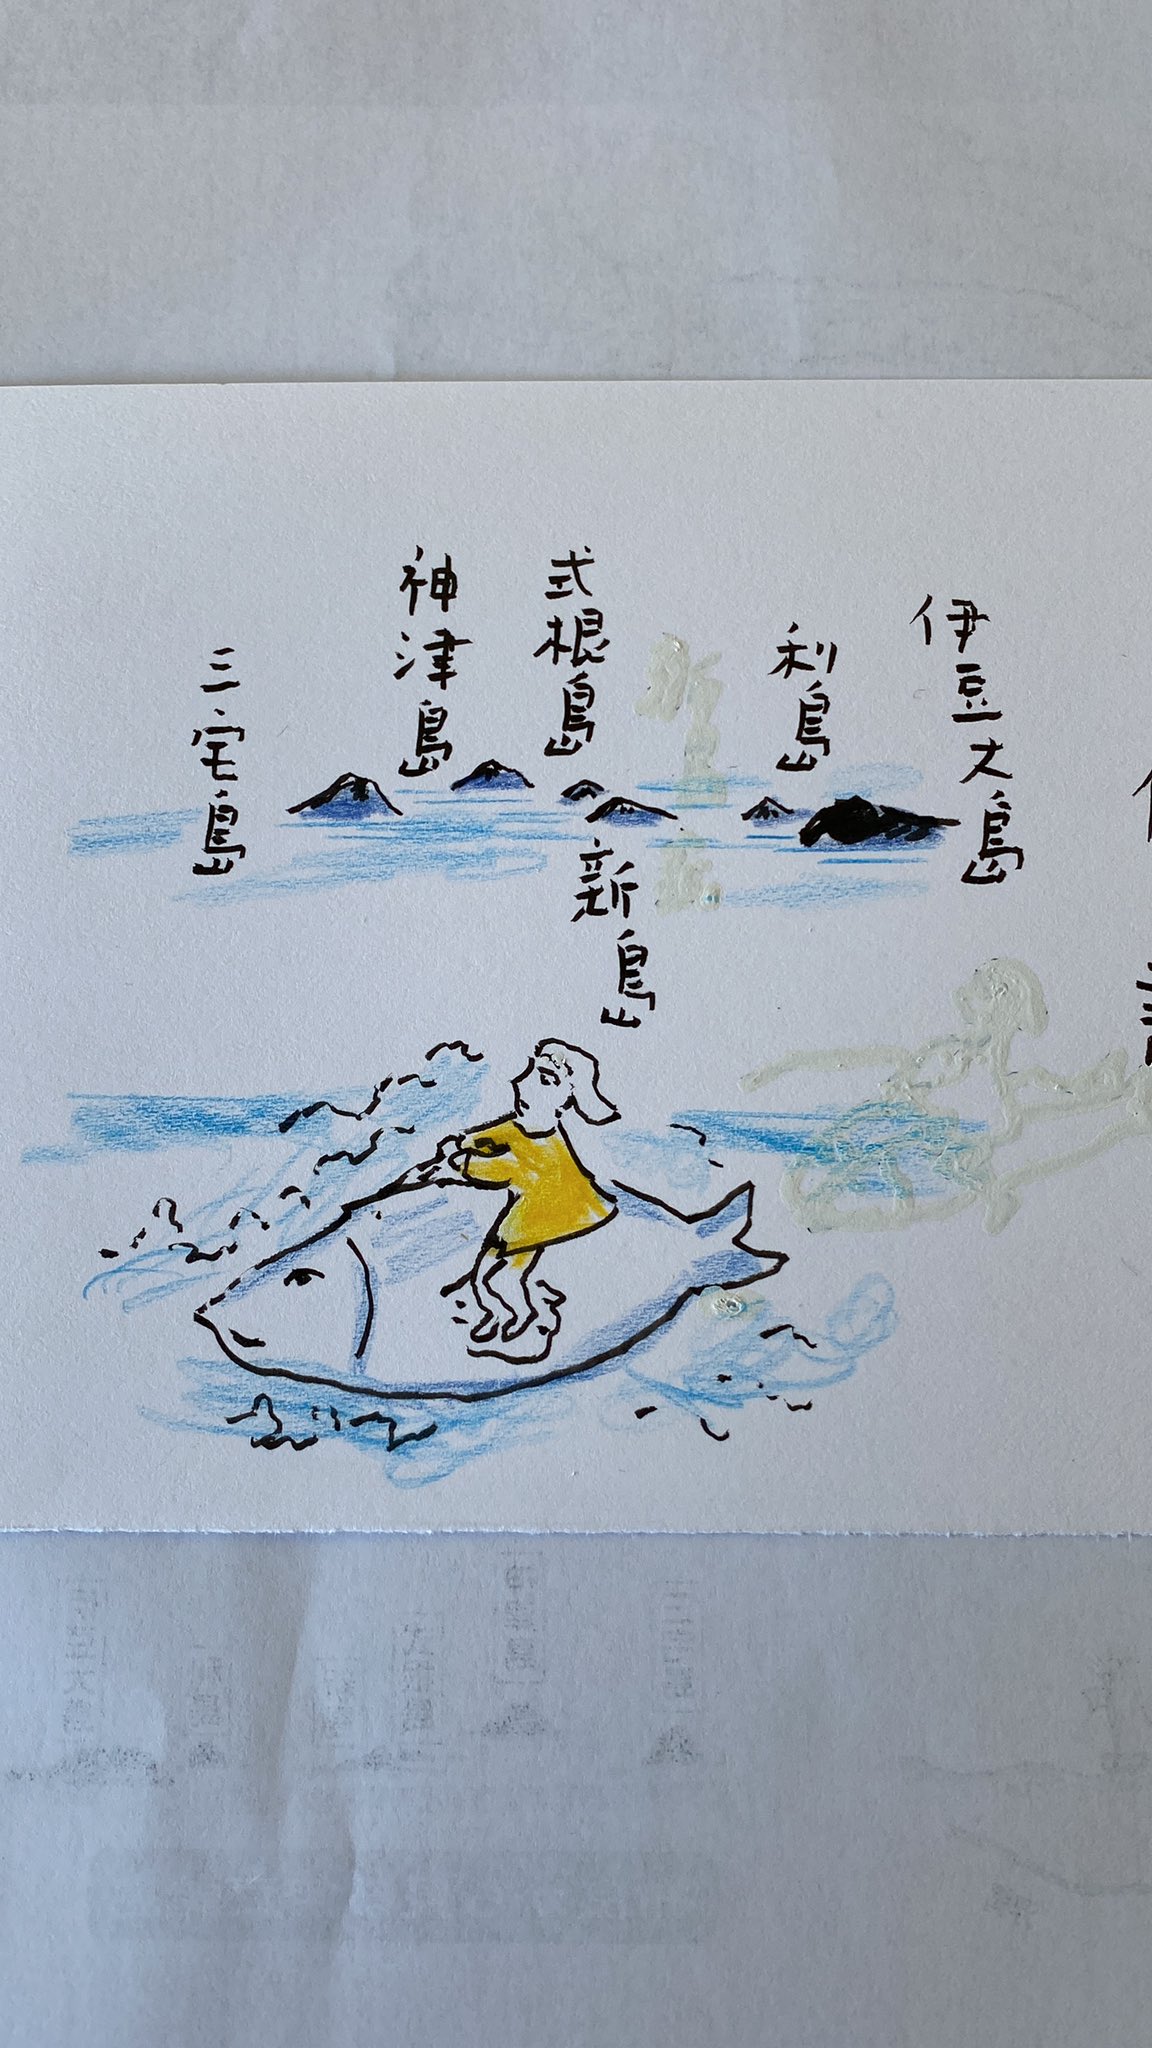 伊豆大島
利島
新島
式根島
神津島
三宅島